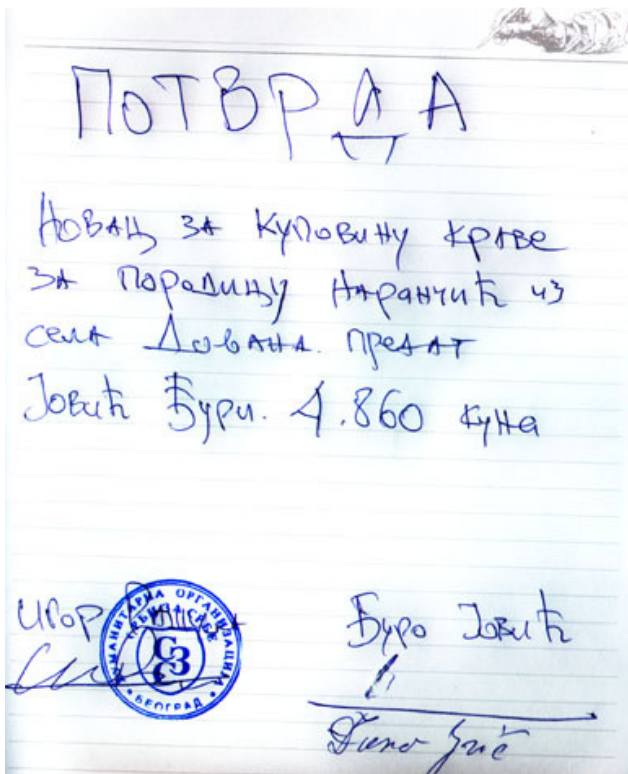 ПОТВРДА
Новац за куповину краве
за породицу Наранчић из
села Дована. предат
Јовић Ђури. 4.860 куна
Игор
ХУМАНИТАРНА ОРГАНИЗАЦИЈА
СРБЕ
СЗ
БЕОГРАД
Ђуро Јовић